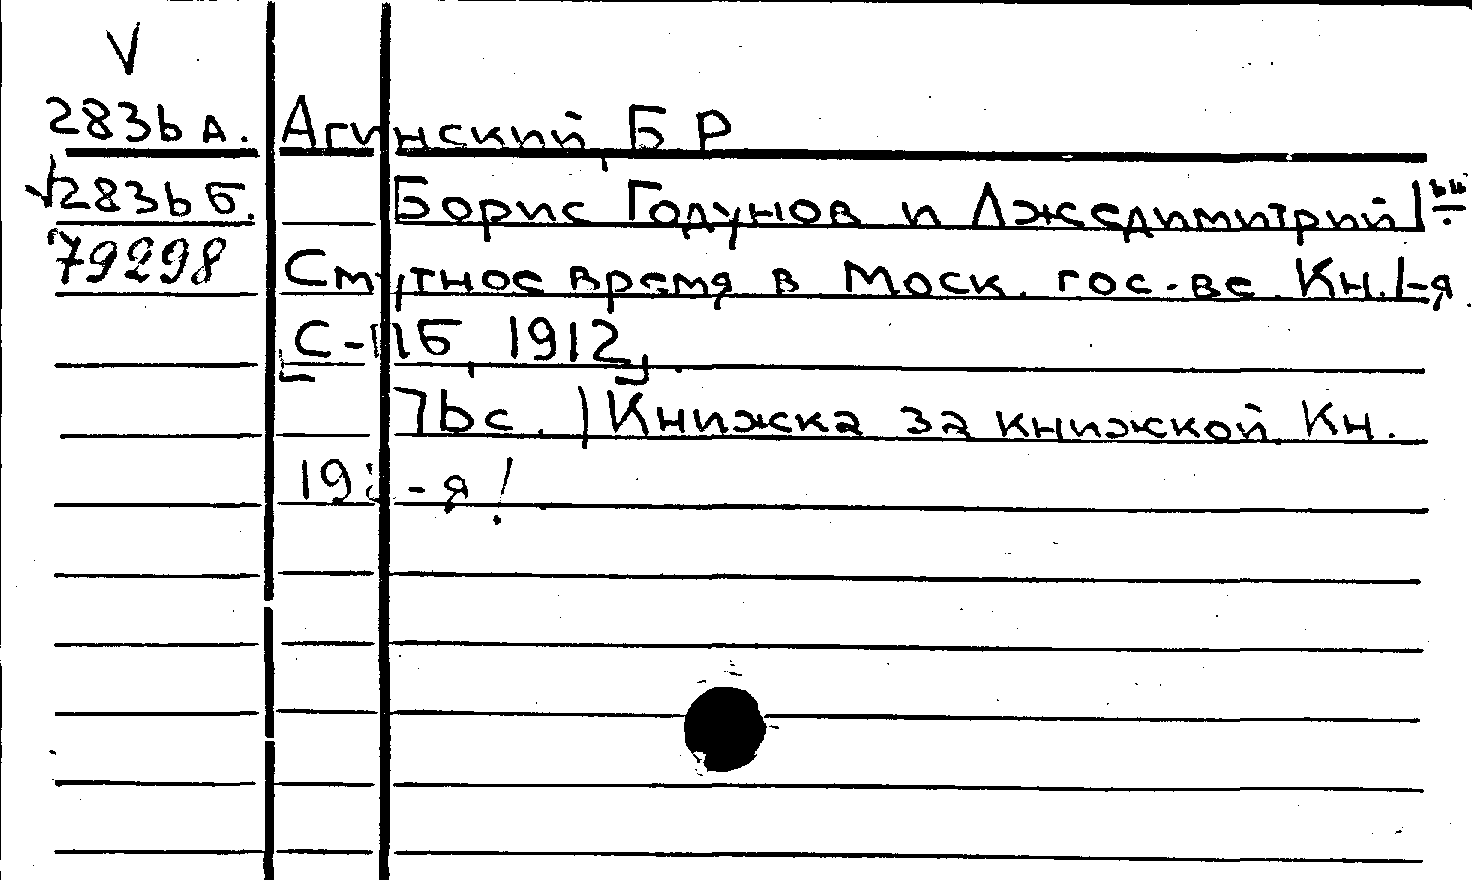 V
2836 А. Агинский, Б Р
√2836 Б. Борис Годунов и Лжедимитрий I
79298 Смутное время в Моск. гос-ве. Кн. I-я.
С-Пб, 1912.
76 с. (Книжка за книжкой. Кн.
-я)